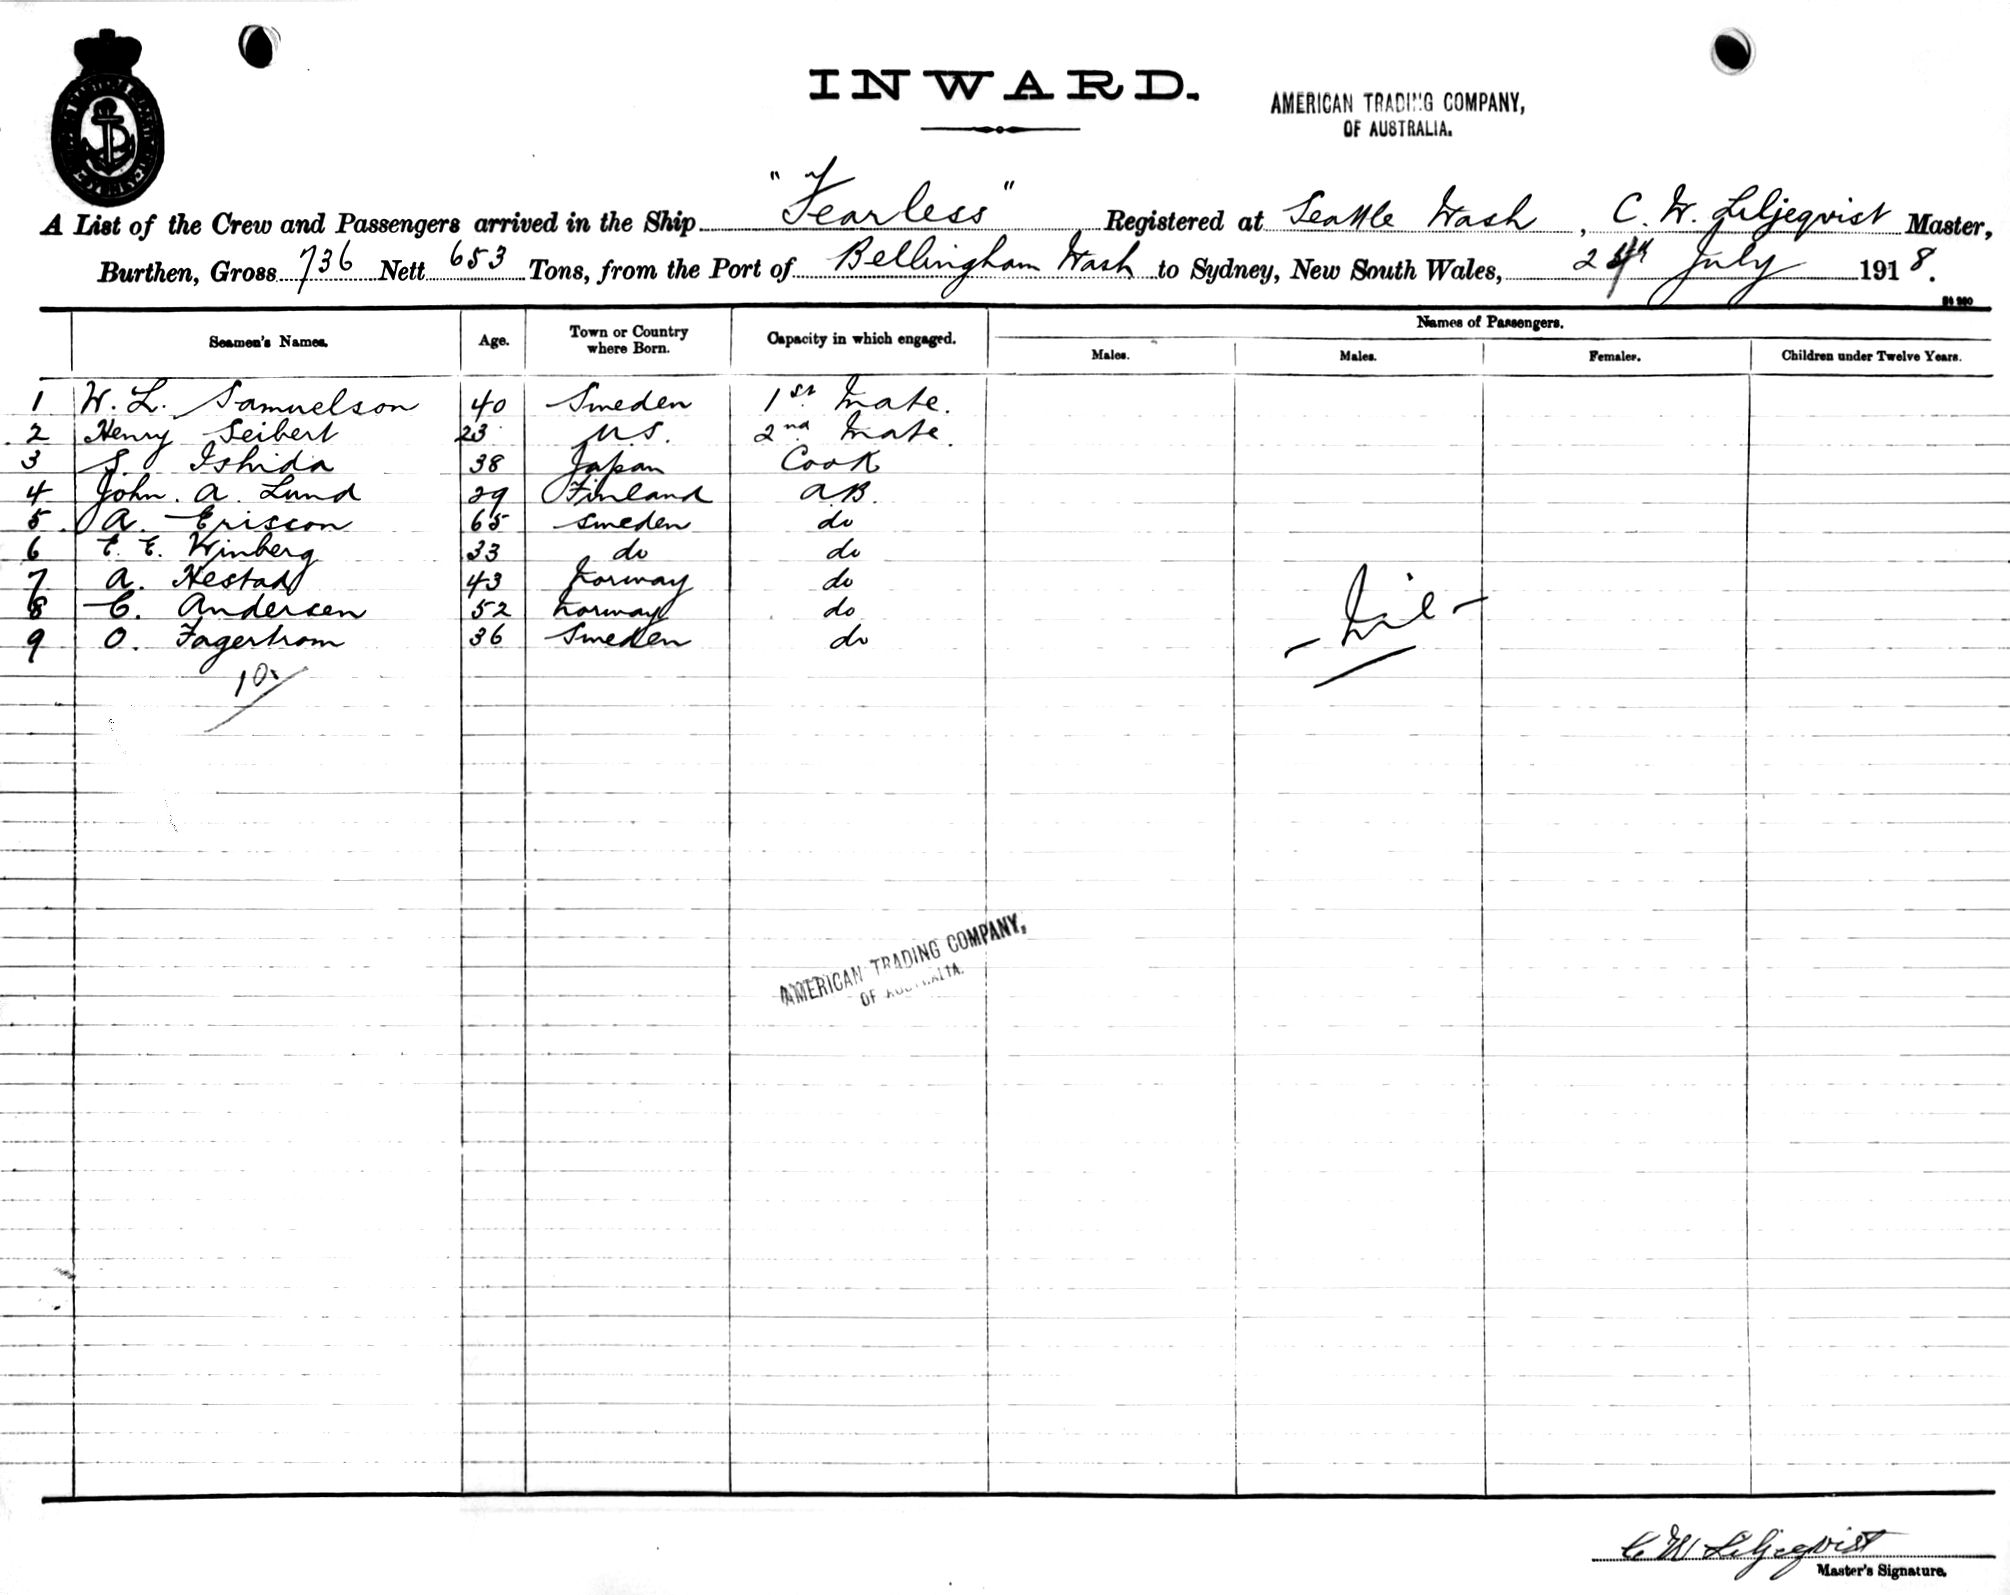 INWARD.
AMERICAN TRADING COMPANY,
OF AUSTRALIA.
A List of the Crew and Passengers arrived in the Ship "Fearless" Registered at Seattle Wash, C. W. Liljeqvist Master,
Burthen, Gross 736 Nett 653 Tons, from the Port of Bellingham Wash to Sydney, New South Wales, 24th July 1918.
Seamen's Names. Age. Town or Country where Born. Capacity in which engaged. Names of Passengers.
Males. Males. Females. Children under Twelve Years.
1 W. L. Samuelson 40 Sweden 1st Mate.
2 Henry Seibert 23 U.S. 2nd Mate.
3 S. Ishida 38 Japan Cook
4 John. A. Lund 29 Finland AB.
5. A. Ericson 65 Sweden do
6 E. E. Winberg 33 do do
7 A. Hestad 43 Norway do
8 C. Andersen 52 Norway do
9 O. Fagertrom 36 Sweden do
- Nil -
10.
AMERICAN TRADING COMPANY,
OF AUSTRALIA.
C W Liljeqvist
Master's Signature.